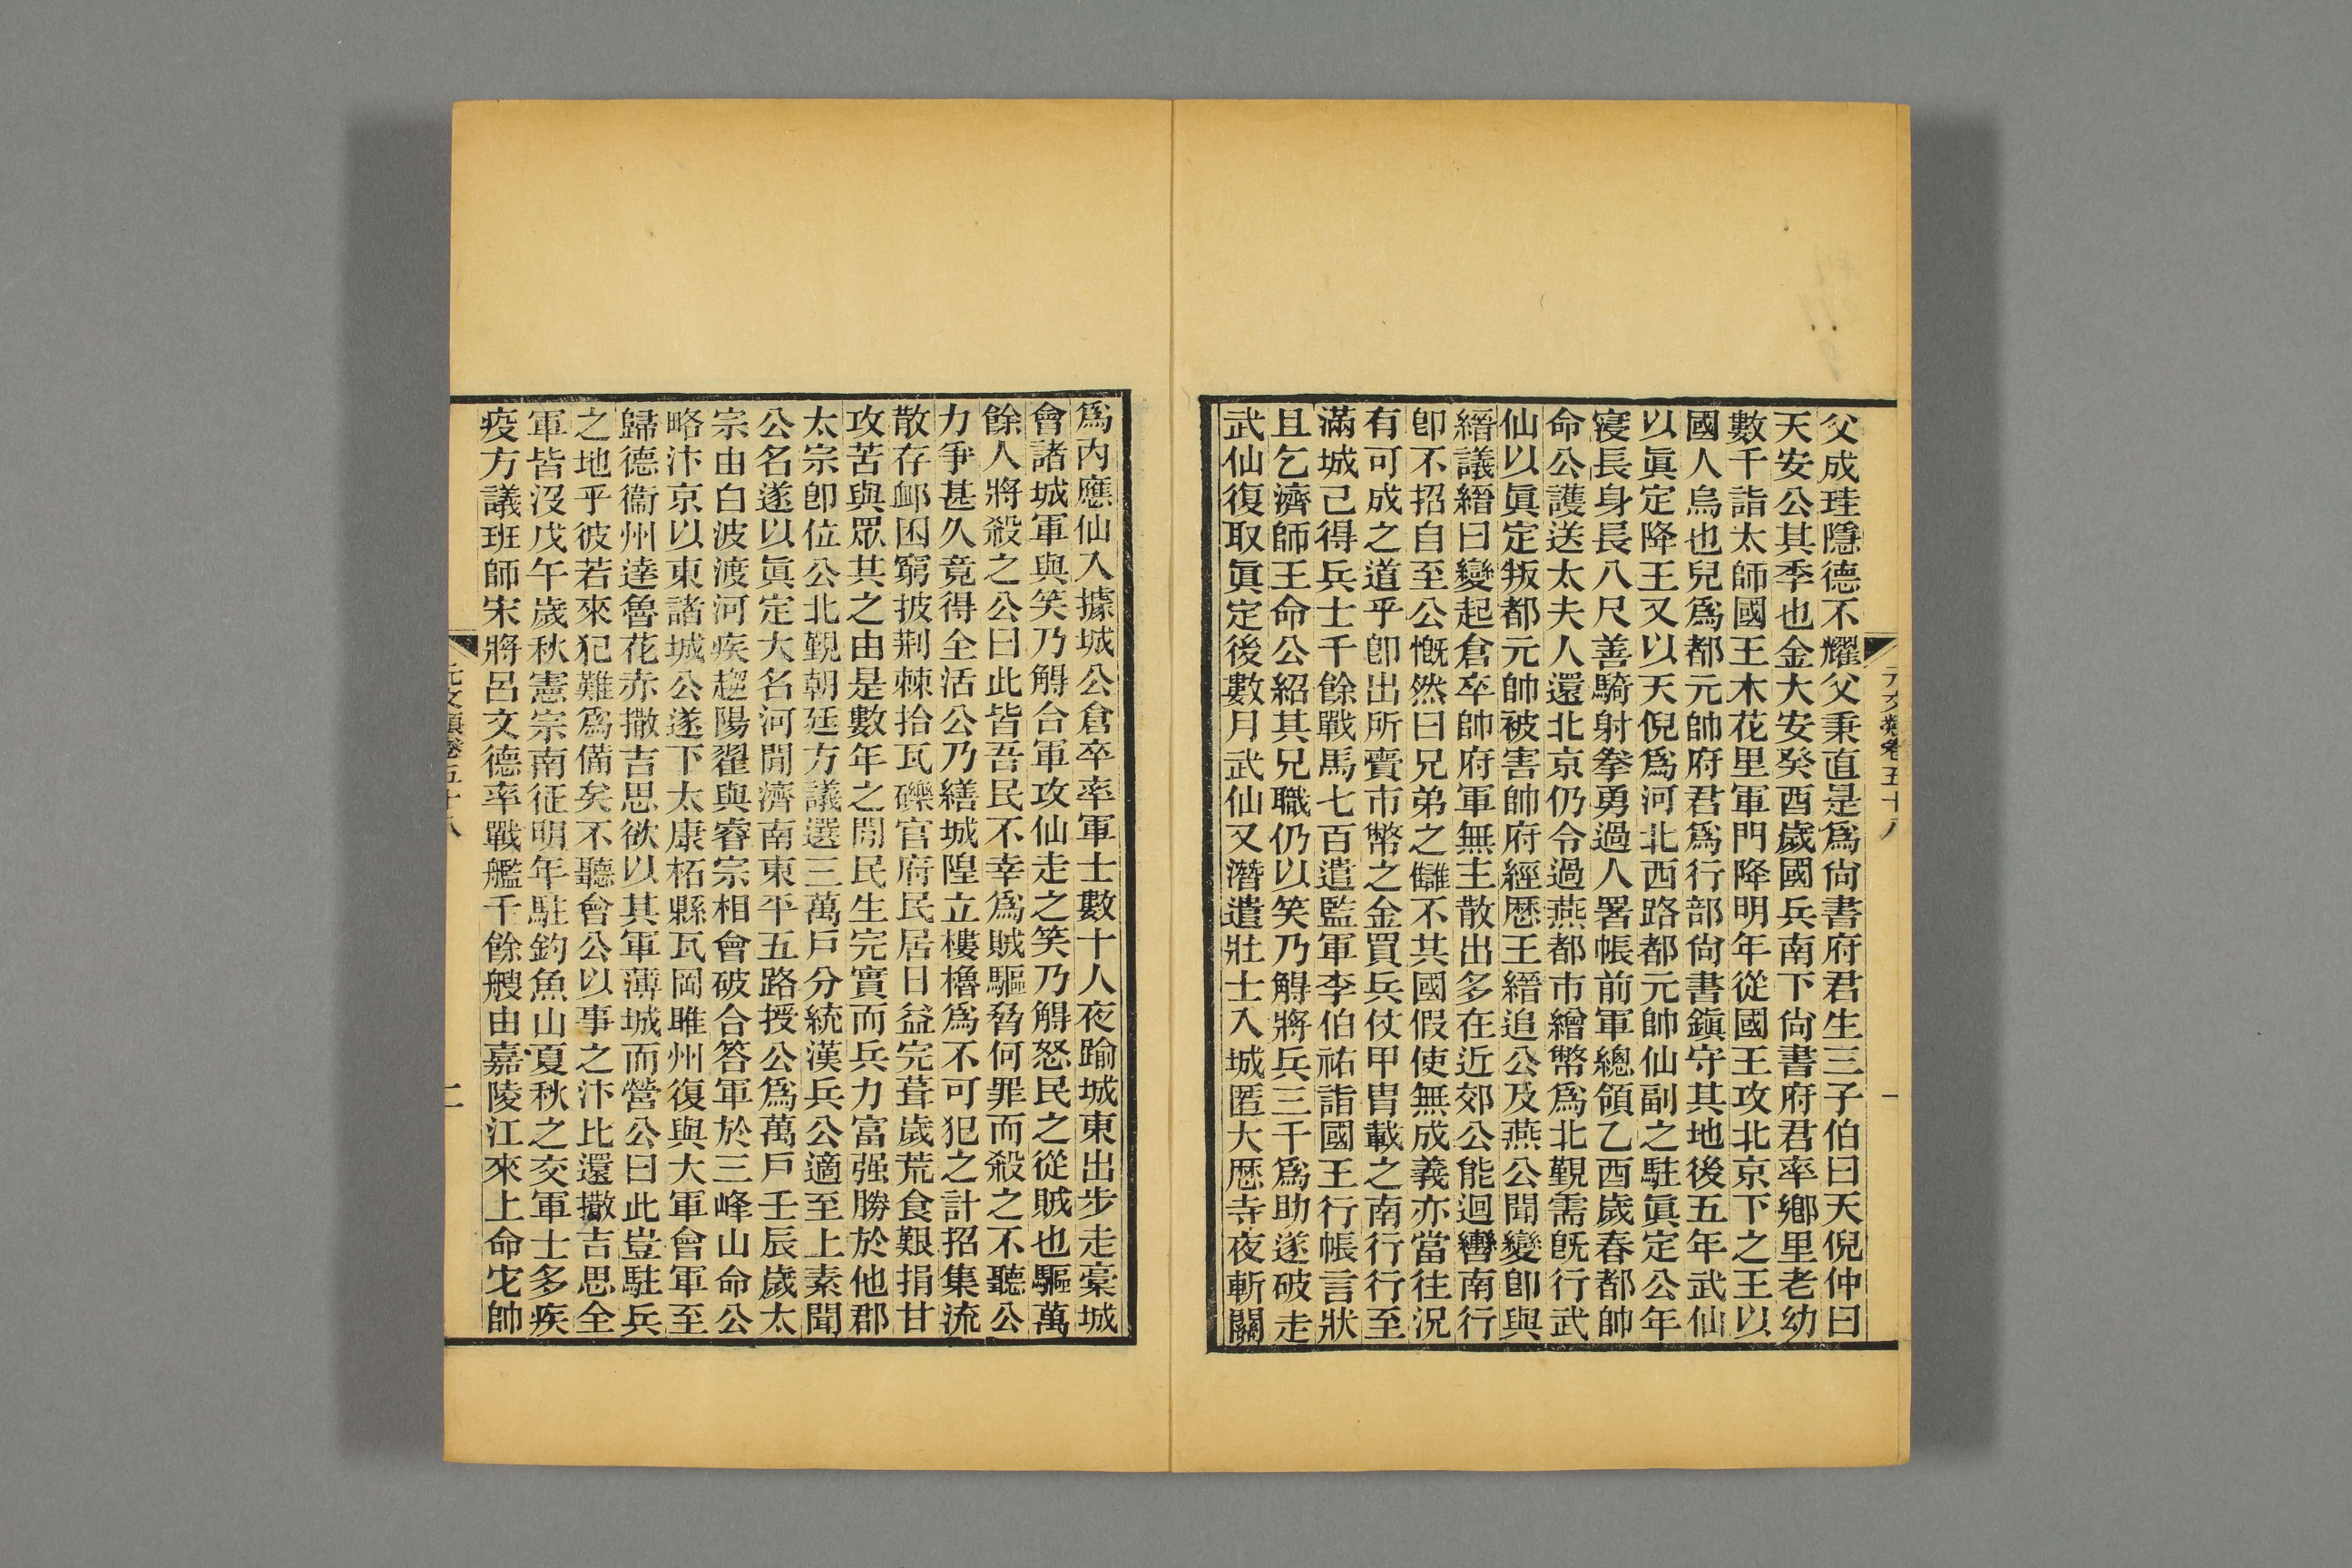 父成珪隱德不耀父秉直是爲尙書府君生三子伯曰天倪仲曰
天安公其季也金大安癸酉歲國兵南下尙書府君率鄉里老幼
數千詣太師國王木花里軍門降明年從國王攻北京下之王以
國人烏也兒爲都元帥府君爲行部尙書鎭守其地後五年武仙
以眞定降王又以天倪爲河北西路都元帥仙副之駐眞定公年
寖長身長八尺善騎射拳勇過人署帳前軍總領乙酉歲春都帥
命公護送太夫人還北京仍令過燕都市繒幣爲北覲需旣行武
仙以眞定叛都元帥被害帥府經歷王縉追公及燕公聞變卽與
縉議縉曰變起倉卒帥府軍無主散出多在近郊公能迴轡南行
卽不招自至公慨然曰兄弟之讎不共國假使無成義亦當往況
有可成之道乎卽出所賣市幣之金買兵仗甲冑載之南行行至
滿城已得兵士千餘戰馬七百遣監軍李伯祐詣國王行帳言狀
且乞濟師王命公紹其兄職仍以笑乃䚟將兵三千爲助遂破走
武仙復取眞定後數月武仙又潛遣壯士入城匿大歷寺夜斬關
元文類卷五十八
爲內應仙入據城公倉卒率軍士數十人夜踰城東出步走藁城
會諸城軍與笑乃䚟合軍攻仙走之笑乃䚟怒民之從賊也驅萬
餘人將殺之公曰此皆吾民不幸爲賊驅脅何罪而殺之不聽公
力爭甚久竟得全活公乃繕城隍立樓櫓爲不可犯之計招集流
散存卹困窮披荆棘拾瓦礫官府民居日益完葺歲荒食艱捐甘
攻苦與眾共之由是數年之閒民生完實而兵力富强勝於他郡
太宗卽位公北覲朝廷方議選三萬戶分統漢兵公適至上素聞
公名遂以眞定大名河閒濟南東平五路授公爲萬戶壬辰歲太
宗由白波渡河疾趨陽翟與睿宗相會破合答軍於三峰山命公
略汴京以東諸城公遂下太康柘縣瓦岡睢州復與大軍會軍至
歸德衞州達魯花赤撒吉思欲以其軍薄城而營公曰此豈駐兵
之地乎彼若來犯難爲備矣不聽會公以事之汴比還撒吉思全
軍皆沒戊午歲秋憲宗南征明年駐釣魚山夏秋之交軍士多疾
疫方議班師宋將呂文德率戰艦千餘艘由嘉陵江來上命宅帥
元文類卷五十八